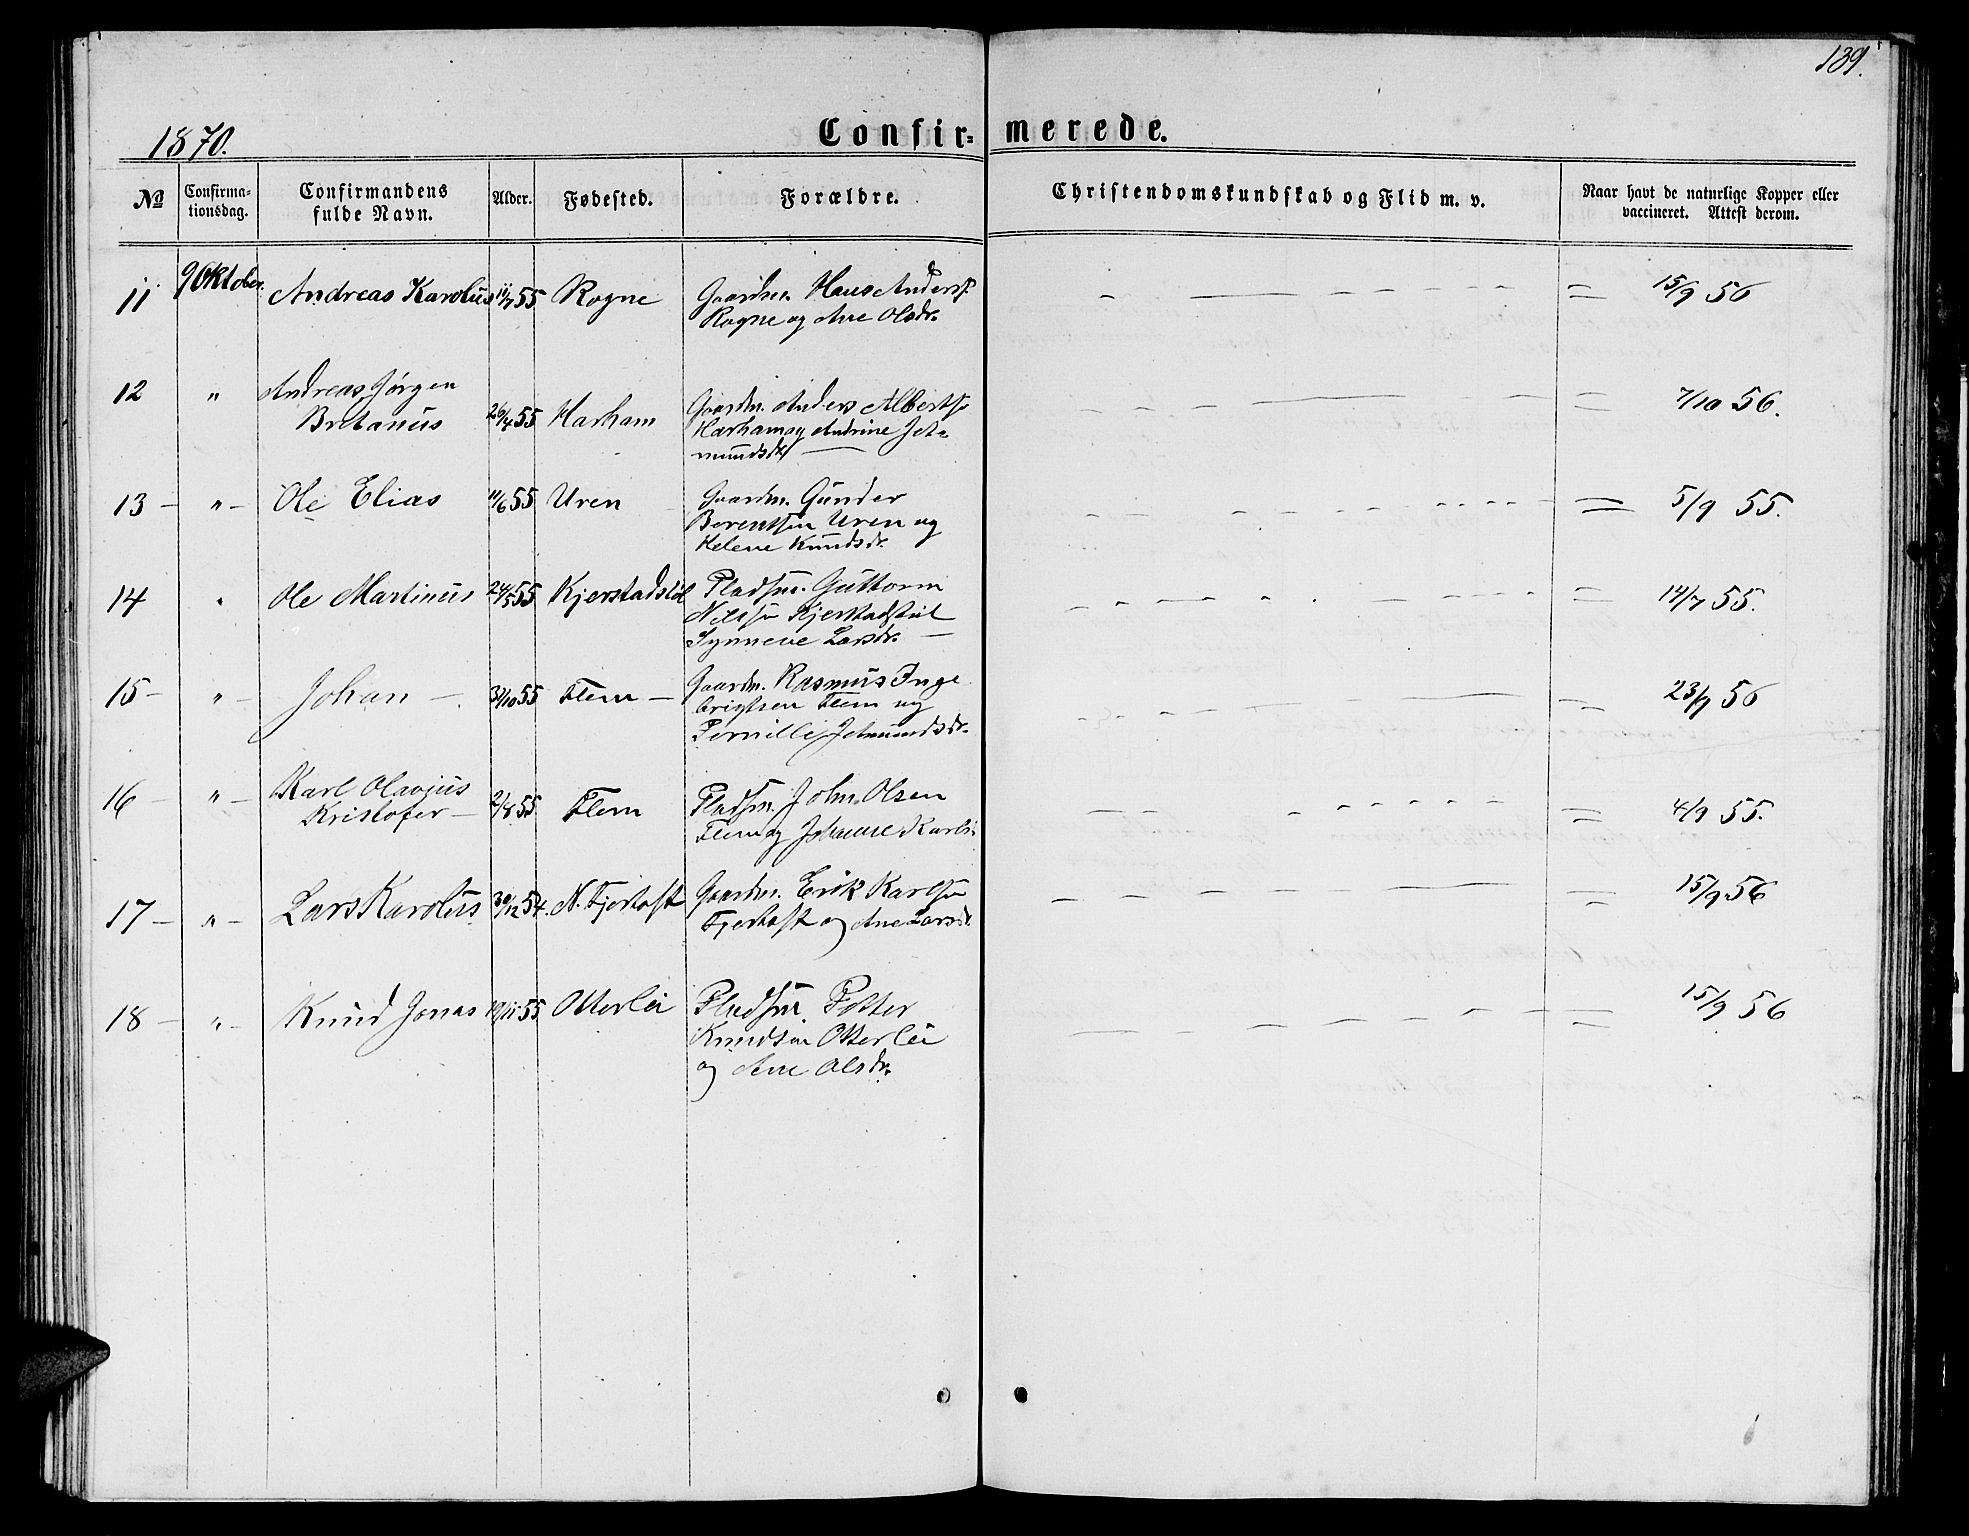 139.
1870. Confir= merede.
No Confirma-tionsdag. Confirmandens fulde Navn. Alder. Fødested. Forældre. Christendomskundskab og Flid m. v. Naar havt de naturlige Kopper eller vaccineret. Attest derom.
11 9 Oktober. Andreas Karolus 11/7 55 Rogne Gaardm. Hans Anders. 15/9 56
Rogne og Ane Olsdr.
12 " Andreas Jørgen
Bretanus 26/4 55 Harham Gaardm. Anders Alberts. 7/10 56.
Harham og Andrine Jet=
mundsdr
13 - " - Ole Elias 11/6 55 Uren Gaardm. Gunder 5/9 55.
Berentsen Uren og
Helene Knudsdr.
14 " Ole Martinus 24/5 55 Kjerstadstøl Pladsm. Guttorm 14/7 55.
Nilss. Kjerstadstøl
Synneve Larsdr.
15 - " - Johan - 31/10 55 Flem - Gaardm. Rasmus Inge 23/9 56
brigtsen Flem og
Pernille Jetmundsdr.
16 - " - Karl Olavius
Kristofer - 2/8 55 Flem Pladsm. John Olsen 4/9 55.
Flem og Johanne Karls.
17 - " - Lars Karolus 30/12 54. N. Fjertoft Gaardm. Erik Karls. 15/9 56
Fjertoft og Ane Larsdr.
18 - " - Knud Jonas 19/11 55 Otterlei Pladsm. Petter 15/9 56
Knudsen Otterlei
og Ane Olsdr.